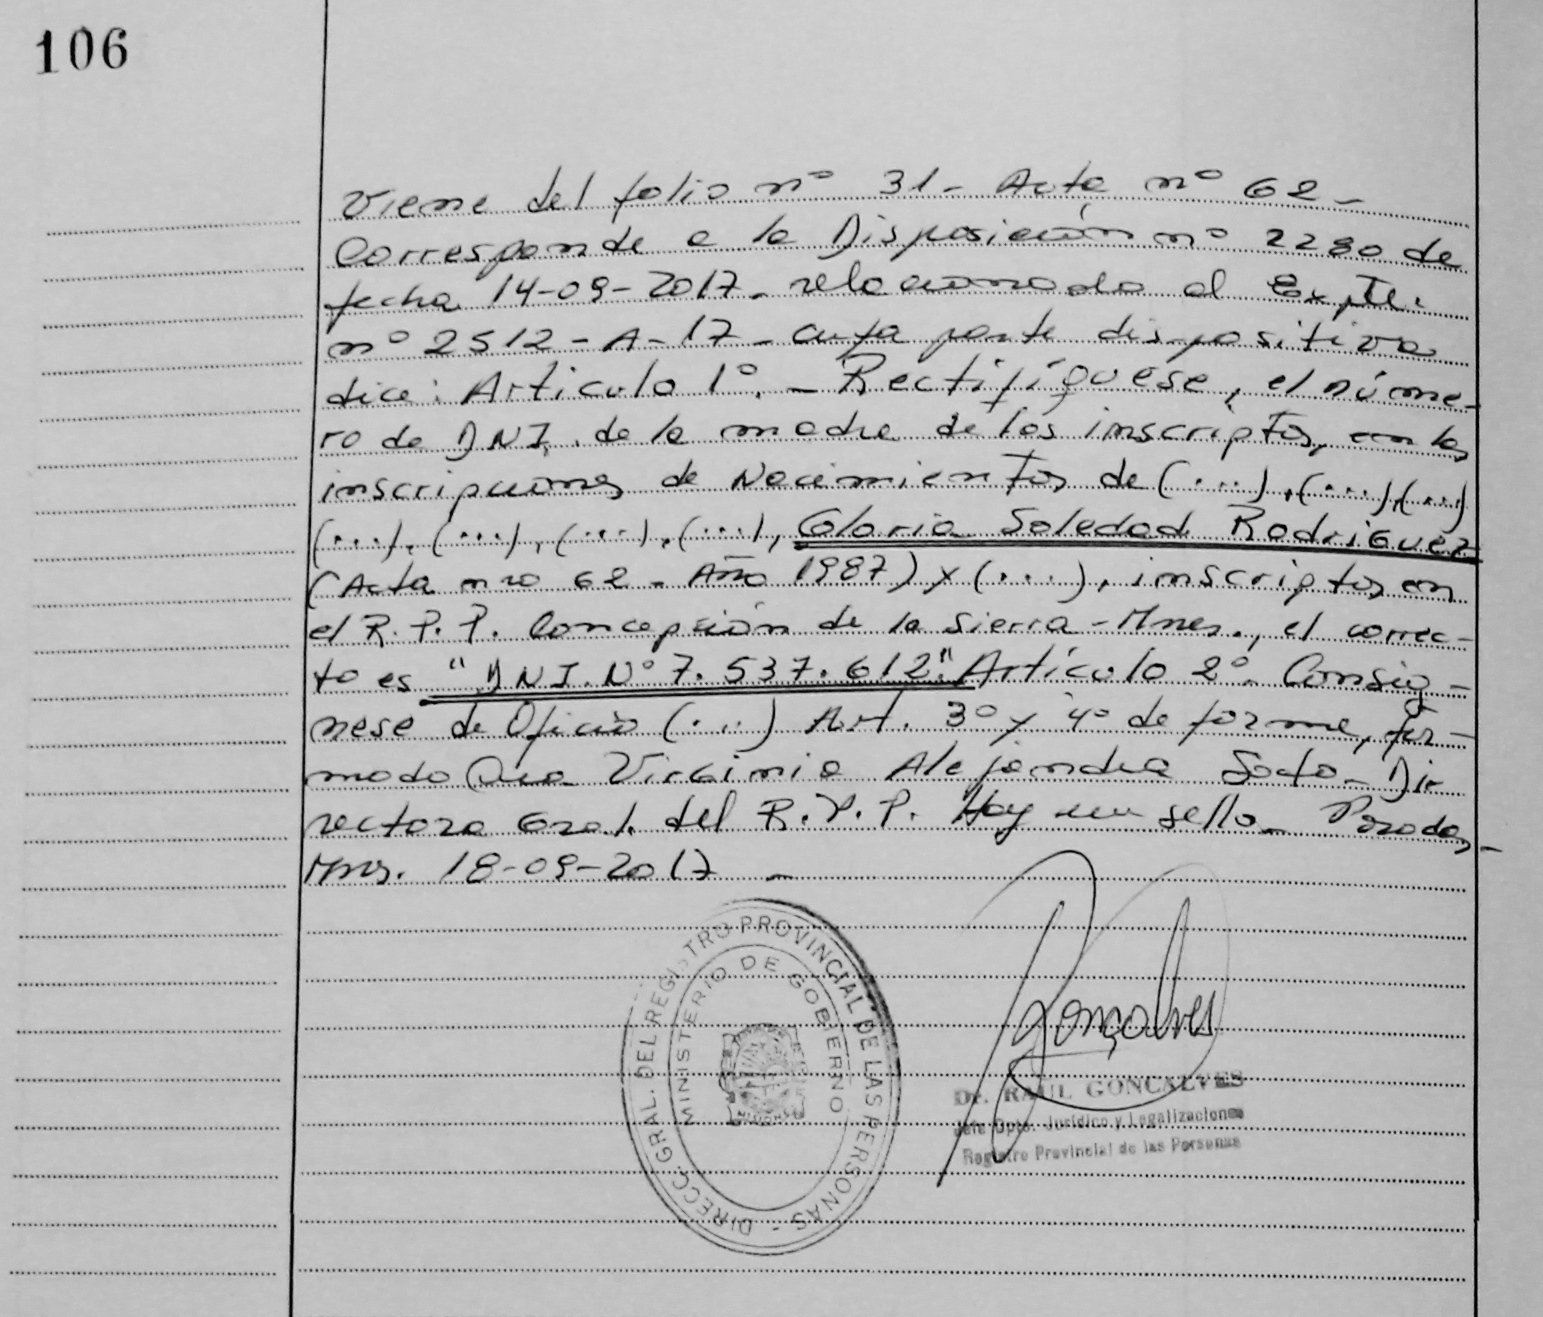 106
Viene del folio nº 31- Acta nº 62-
Corresponde a la Disposición nº 2280 de
fecha 14-09-2017- relacionado al Expte.
nº 2512-A-17- cuya parte dispositiva
dice: Articulo 1º.- Rectifíquese, el núme-
ro de DNI. de la madre de los inscriptos, en las
inscripciones de Nacimientos de (...), (...), (...)
(...), (...), (...), (...), Gloria Soledad Rodriguez
(Acta nro 62- Año 1987) y (...), inscriptos en
el R.P.P. Concepción de la Sierra-Mnes., el correc-
to es "DNI. Nº 7.537.612." Artículo 2º. Consig-
nese de Oficio (...) Art. 3º y 4º de forma, fir-
mado Dra Virginia Alejandra Soto- Di-
rectora Gral. del R.P.P. Hay un sello- Posadas,-
Mns. 18-09-2017 -
DIRECC. GRAL. DEL REGISTRO PROVINCIAL DE LAS PERSONAS -
MINISTERIO DE GOBIERNO
Gonçalves
Dr. RAUL GONCALVES
Jefe Dpto. Jurídico y Legalizaciones
Registro Provincial de las Personas